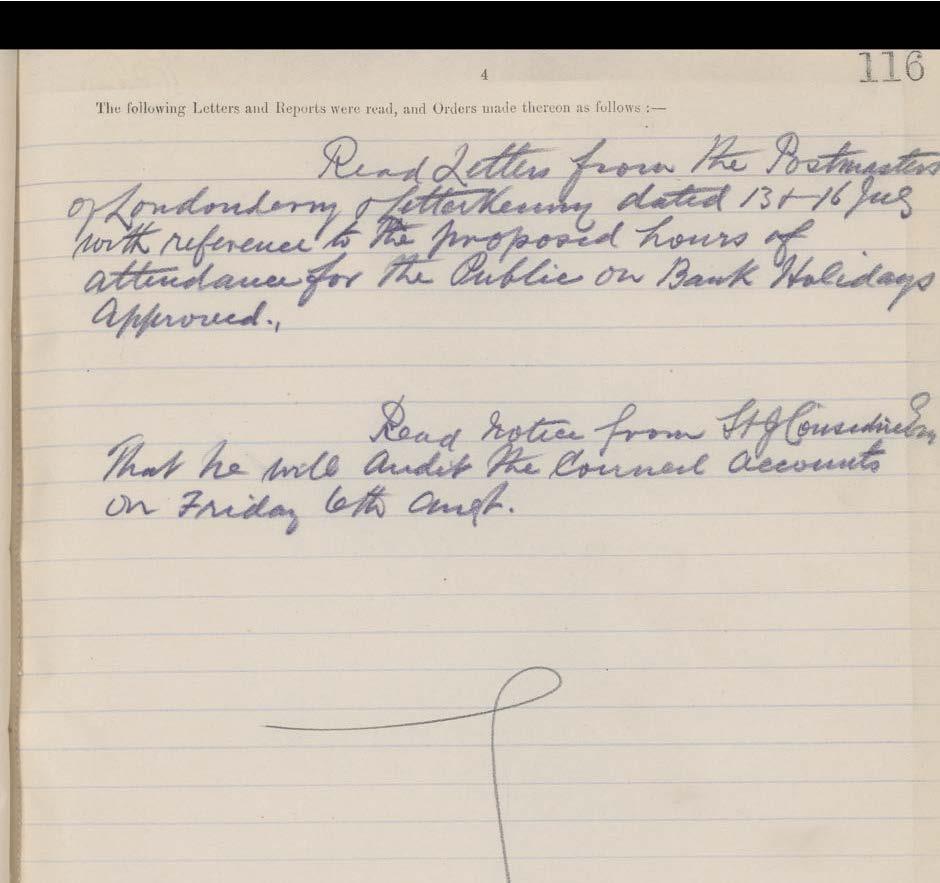 4
116
The following Letters and Reports were read, and Orders made thereon as follows :—
Read Letters from the Postmasters
of Londonderry & Letterkenny dated 13 + 16 July
with reference to the proposed hours of
attendance for the Public on Bank Holidays
Approved.,
Read Notice from St J Considine Esq
That he will Audit the Council Accounts
on Friday 6th Augt.